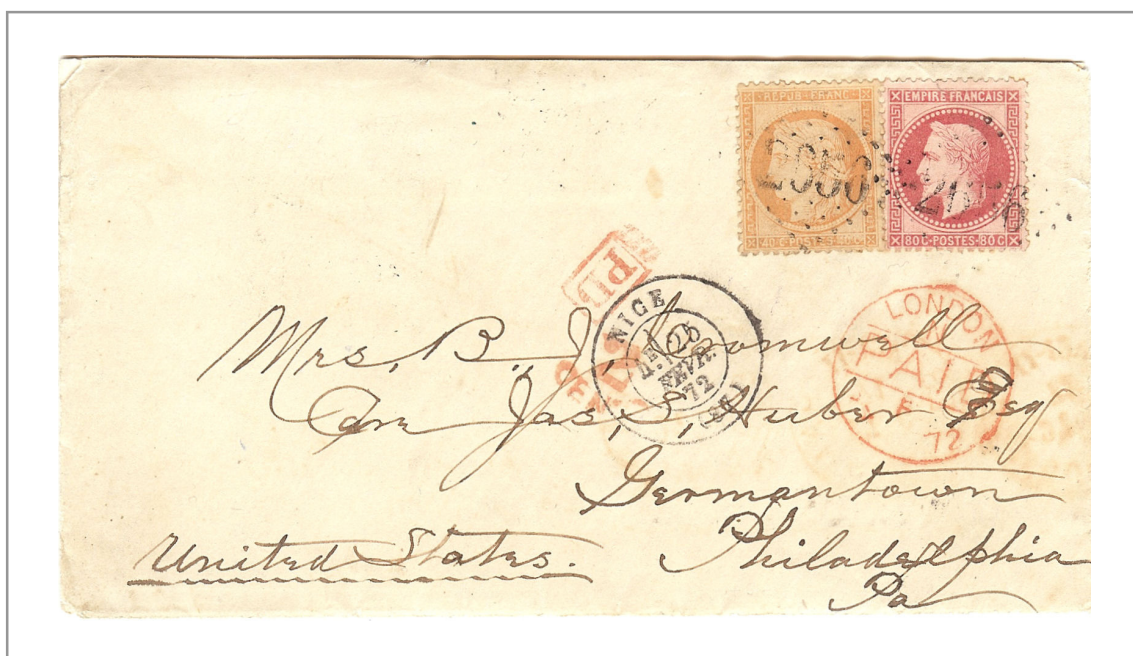 REPUB. FRANC.
40 C. POSTES 40 C.
EMPIRE FRANÇAIS
80 C·POSTES·80 C
2656
2656
PD
NICE
25
FEVR.
72
LONDON
PAID
72
Mrs. B. J. Cromwell
Care Jas. S. Huber Esq
Germantown
Philadelphia
Pa
United States.